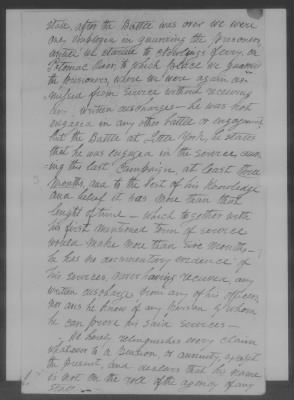 State, after the Battle was over we were
one employed in guarding the Prisoners
untill we started to Ferry, on
Potomac River, to which place we guarded
the prisoners, where we were again dis-
missed from service without receiving
any written discharges — he was not
engaged in any other battle or engagement
but the Battle at little York, he states
that he was engaged in the service dur-
ing this last Campaign, at least three
Months, and to the best of his Knowledge
and belief it was more than that
lenght of time — which together with
his first mentioned term of service
would make more than five months —
he has no documentary evidence of
his services, never having received any
written discharge from any of his officers
nor does he know of any Person by whom
he can prove his said services —
He hereby relinquishes every claim
whatever to a Pension or annuity, except
the present, and declares that his name
is not on the roll of the agency of any
State —